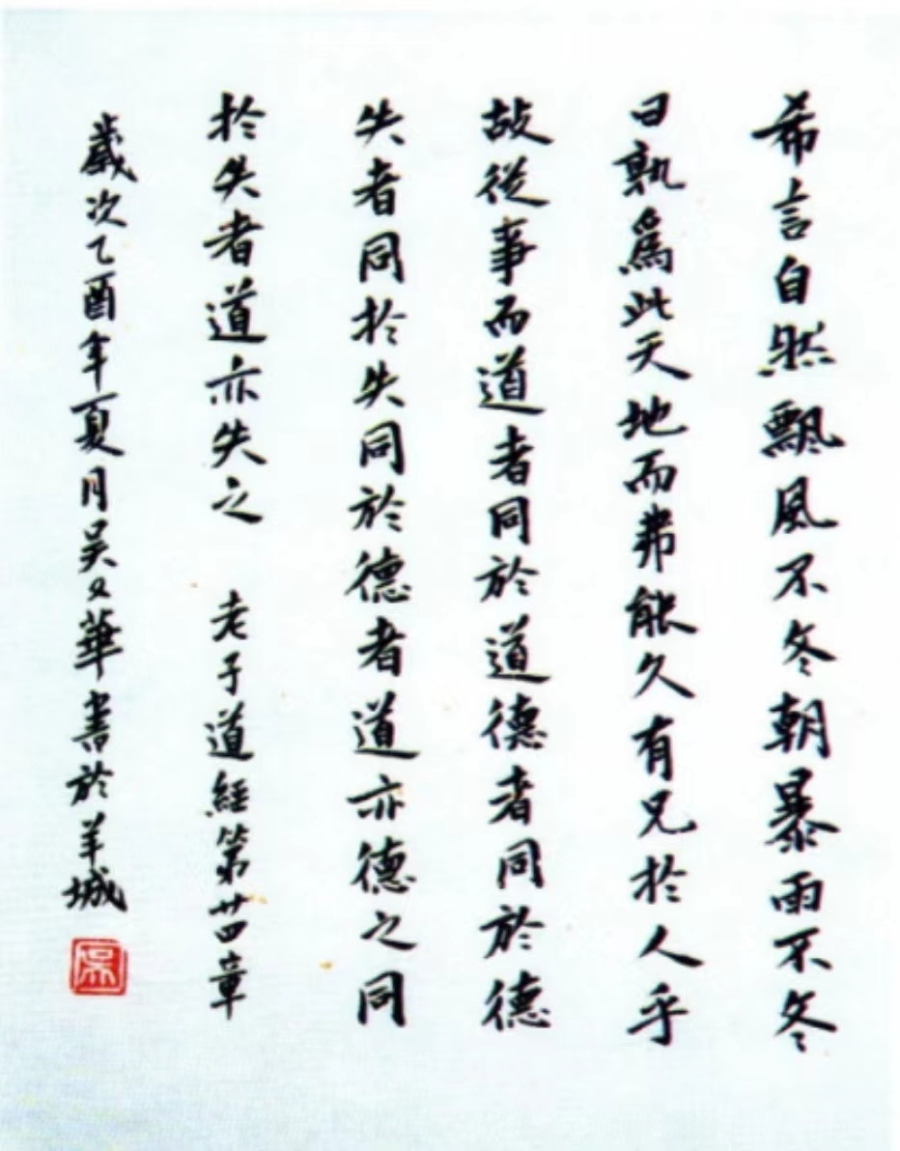 希言自然飄風不冬朝暴雨不冬
日孰爲此天地而弗能久有兄於人乎
故從事而道者同於道德者同於德
失者同於失同於德者道亦德之同
於失者道亦失之 老子道經第廿四章
歲次乙酉年夏月吴又華書於羊城
吴